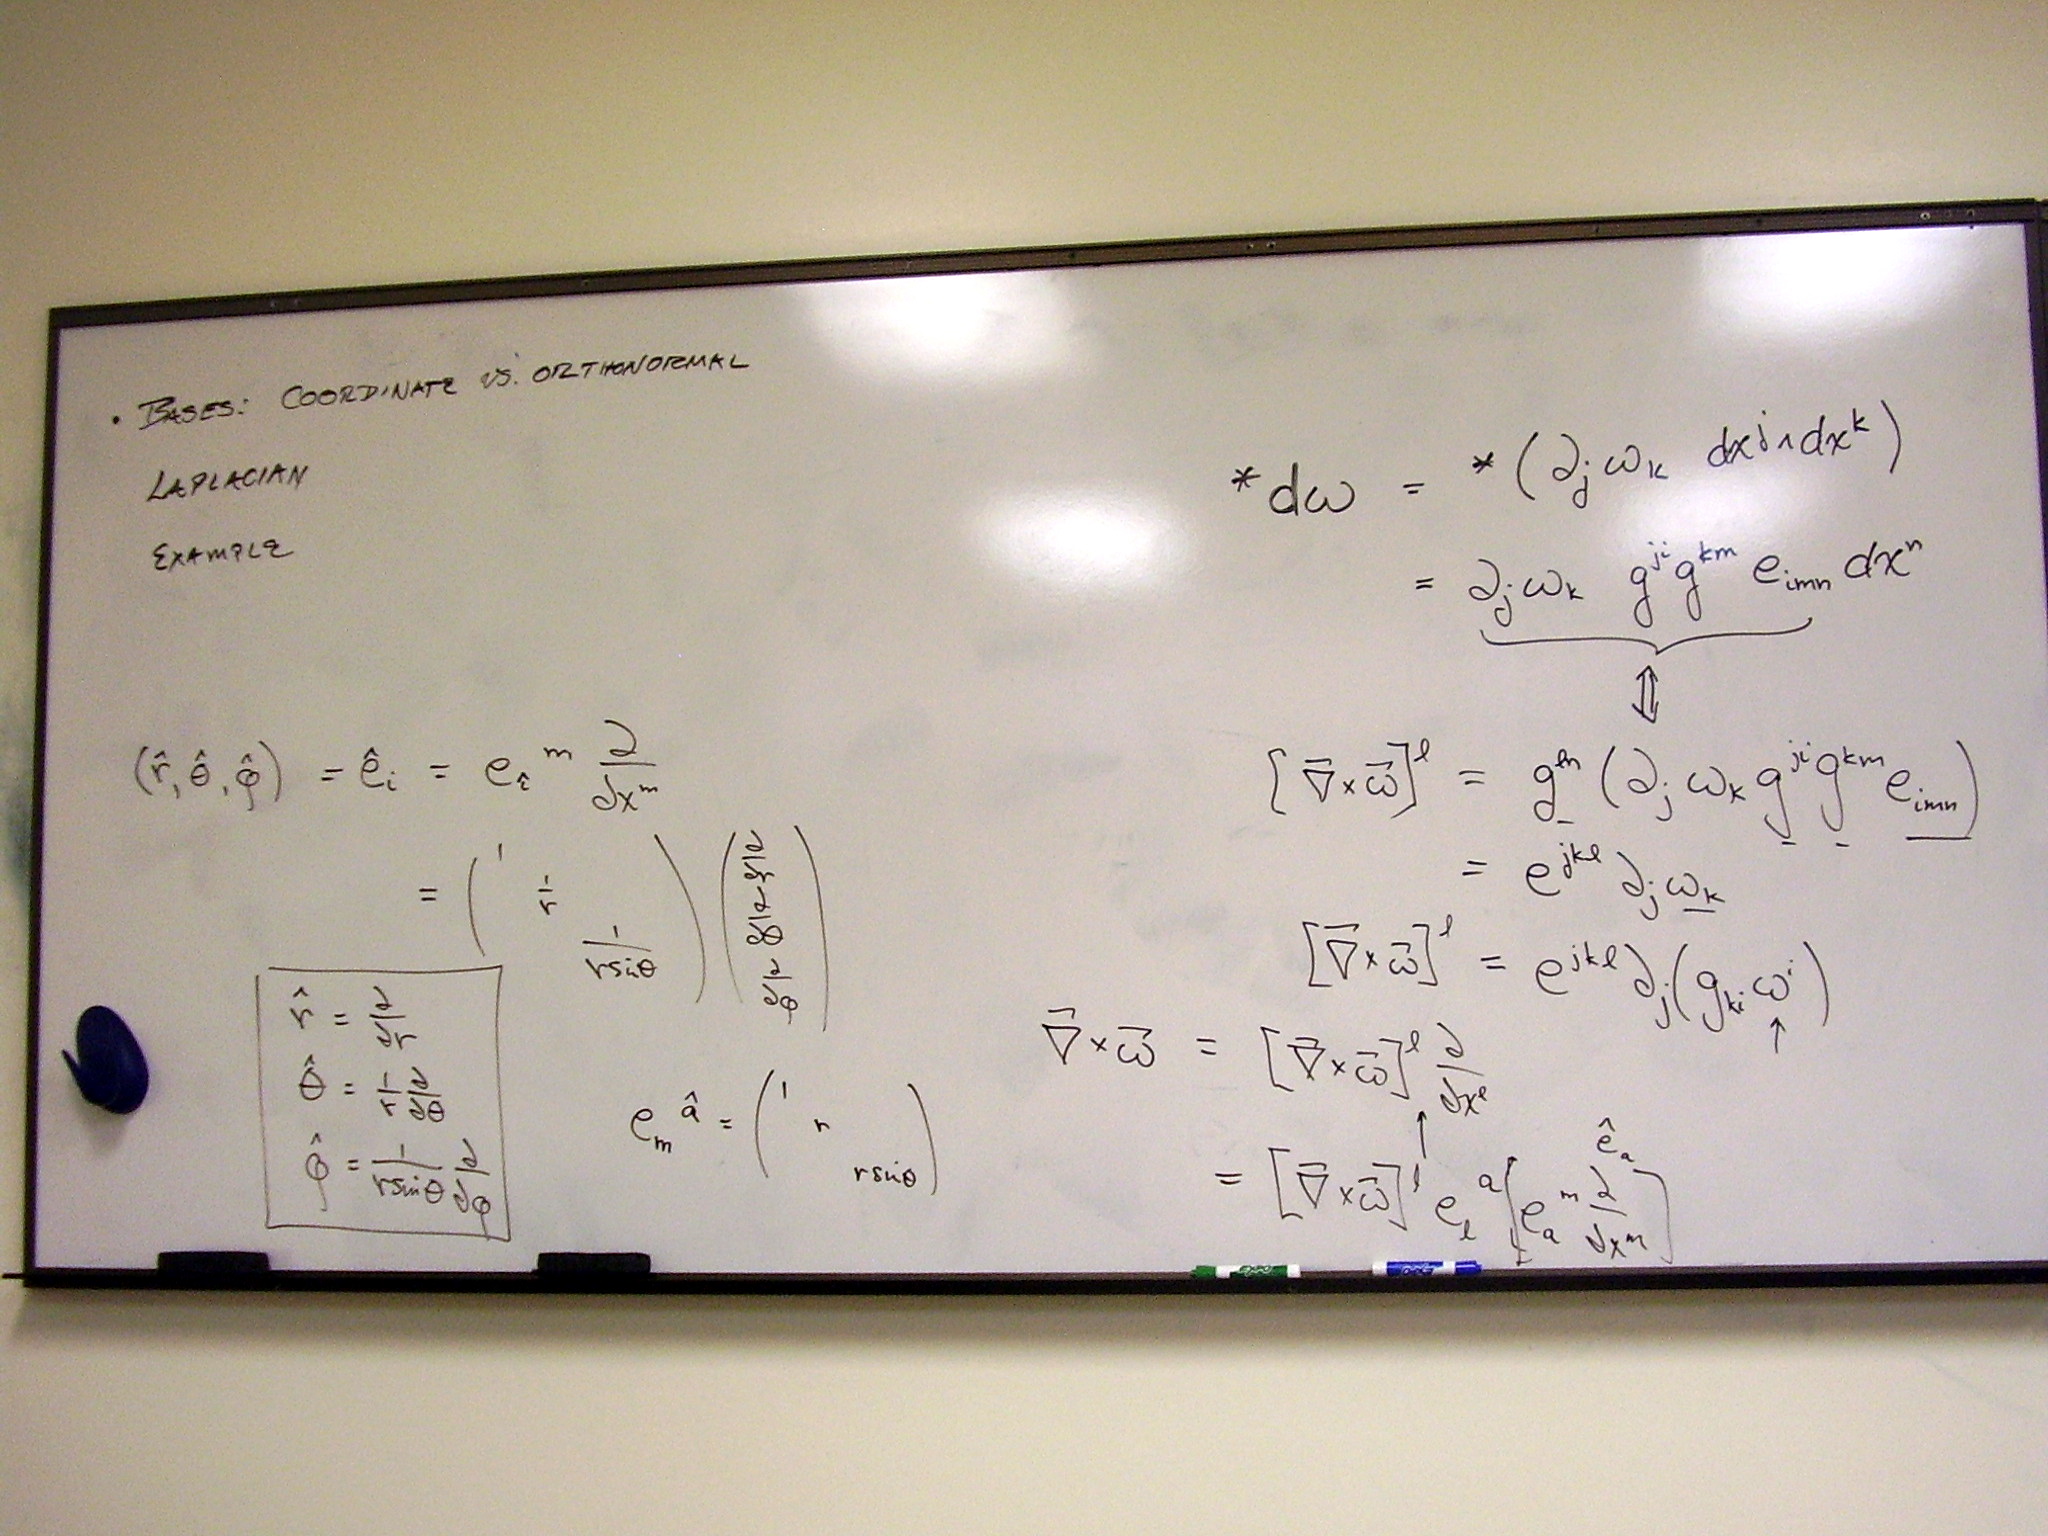 • BASES: COORDINATE VS. ORTHONORMAL
LAPLACIAN
EXAMPLE
(r̂, θ̂, φ̂) = ê_i = e_î^m ∂/∂x^m
= ( 1  1/r  1/(r sinθ) ) ( ∂/∂r  ∂/∂θ  ∂/∂φ )
r̂ = ∂/∂r
θ̂ = 1/r ∂/∂θ
φ̂ = 1/(r sinθ) ∂/∂φ
e_m^â = ( 1  r  r sinθ )
*dω = *(∂_j ω_k dx^j ∧ dx^k)
= ∂_j ω_k g^{ji} g^{km} e_{imn} dx^n
⇕
[∇⃗ × ω⃗]^l = g^{ln} (∂_j ω_k g^{ji} g^{km} e_{imn})
= e^{jkl} ∂_j ω_k
[∇⃗ × ω⃗]^l = e^{jkl} ∂_j (g_{ki} ω^i)
↑
∇⃗ × ω⃗ = [∇⃗ × ω⃗]^l ∂/∂x^l
↑
ê_a
= [∇⃗ × ω⃗]^l e_l^a [e_a^m ∂/∂x^m]